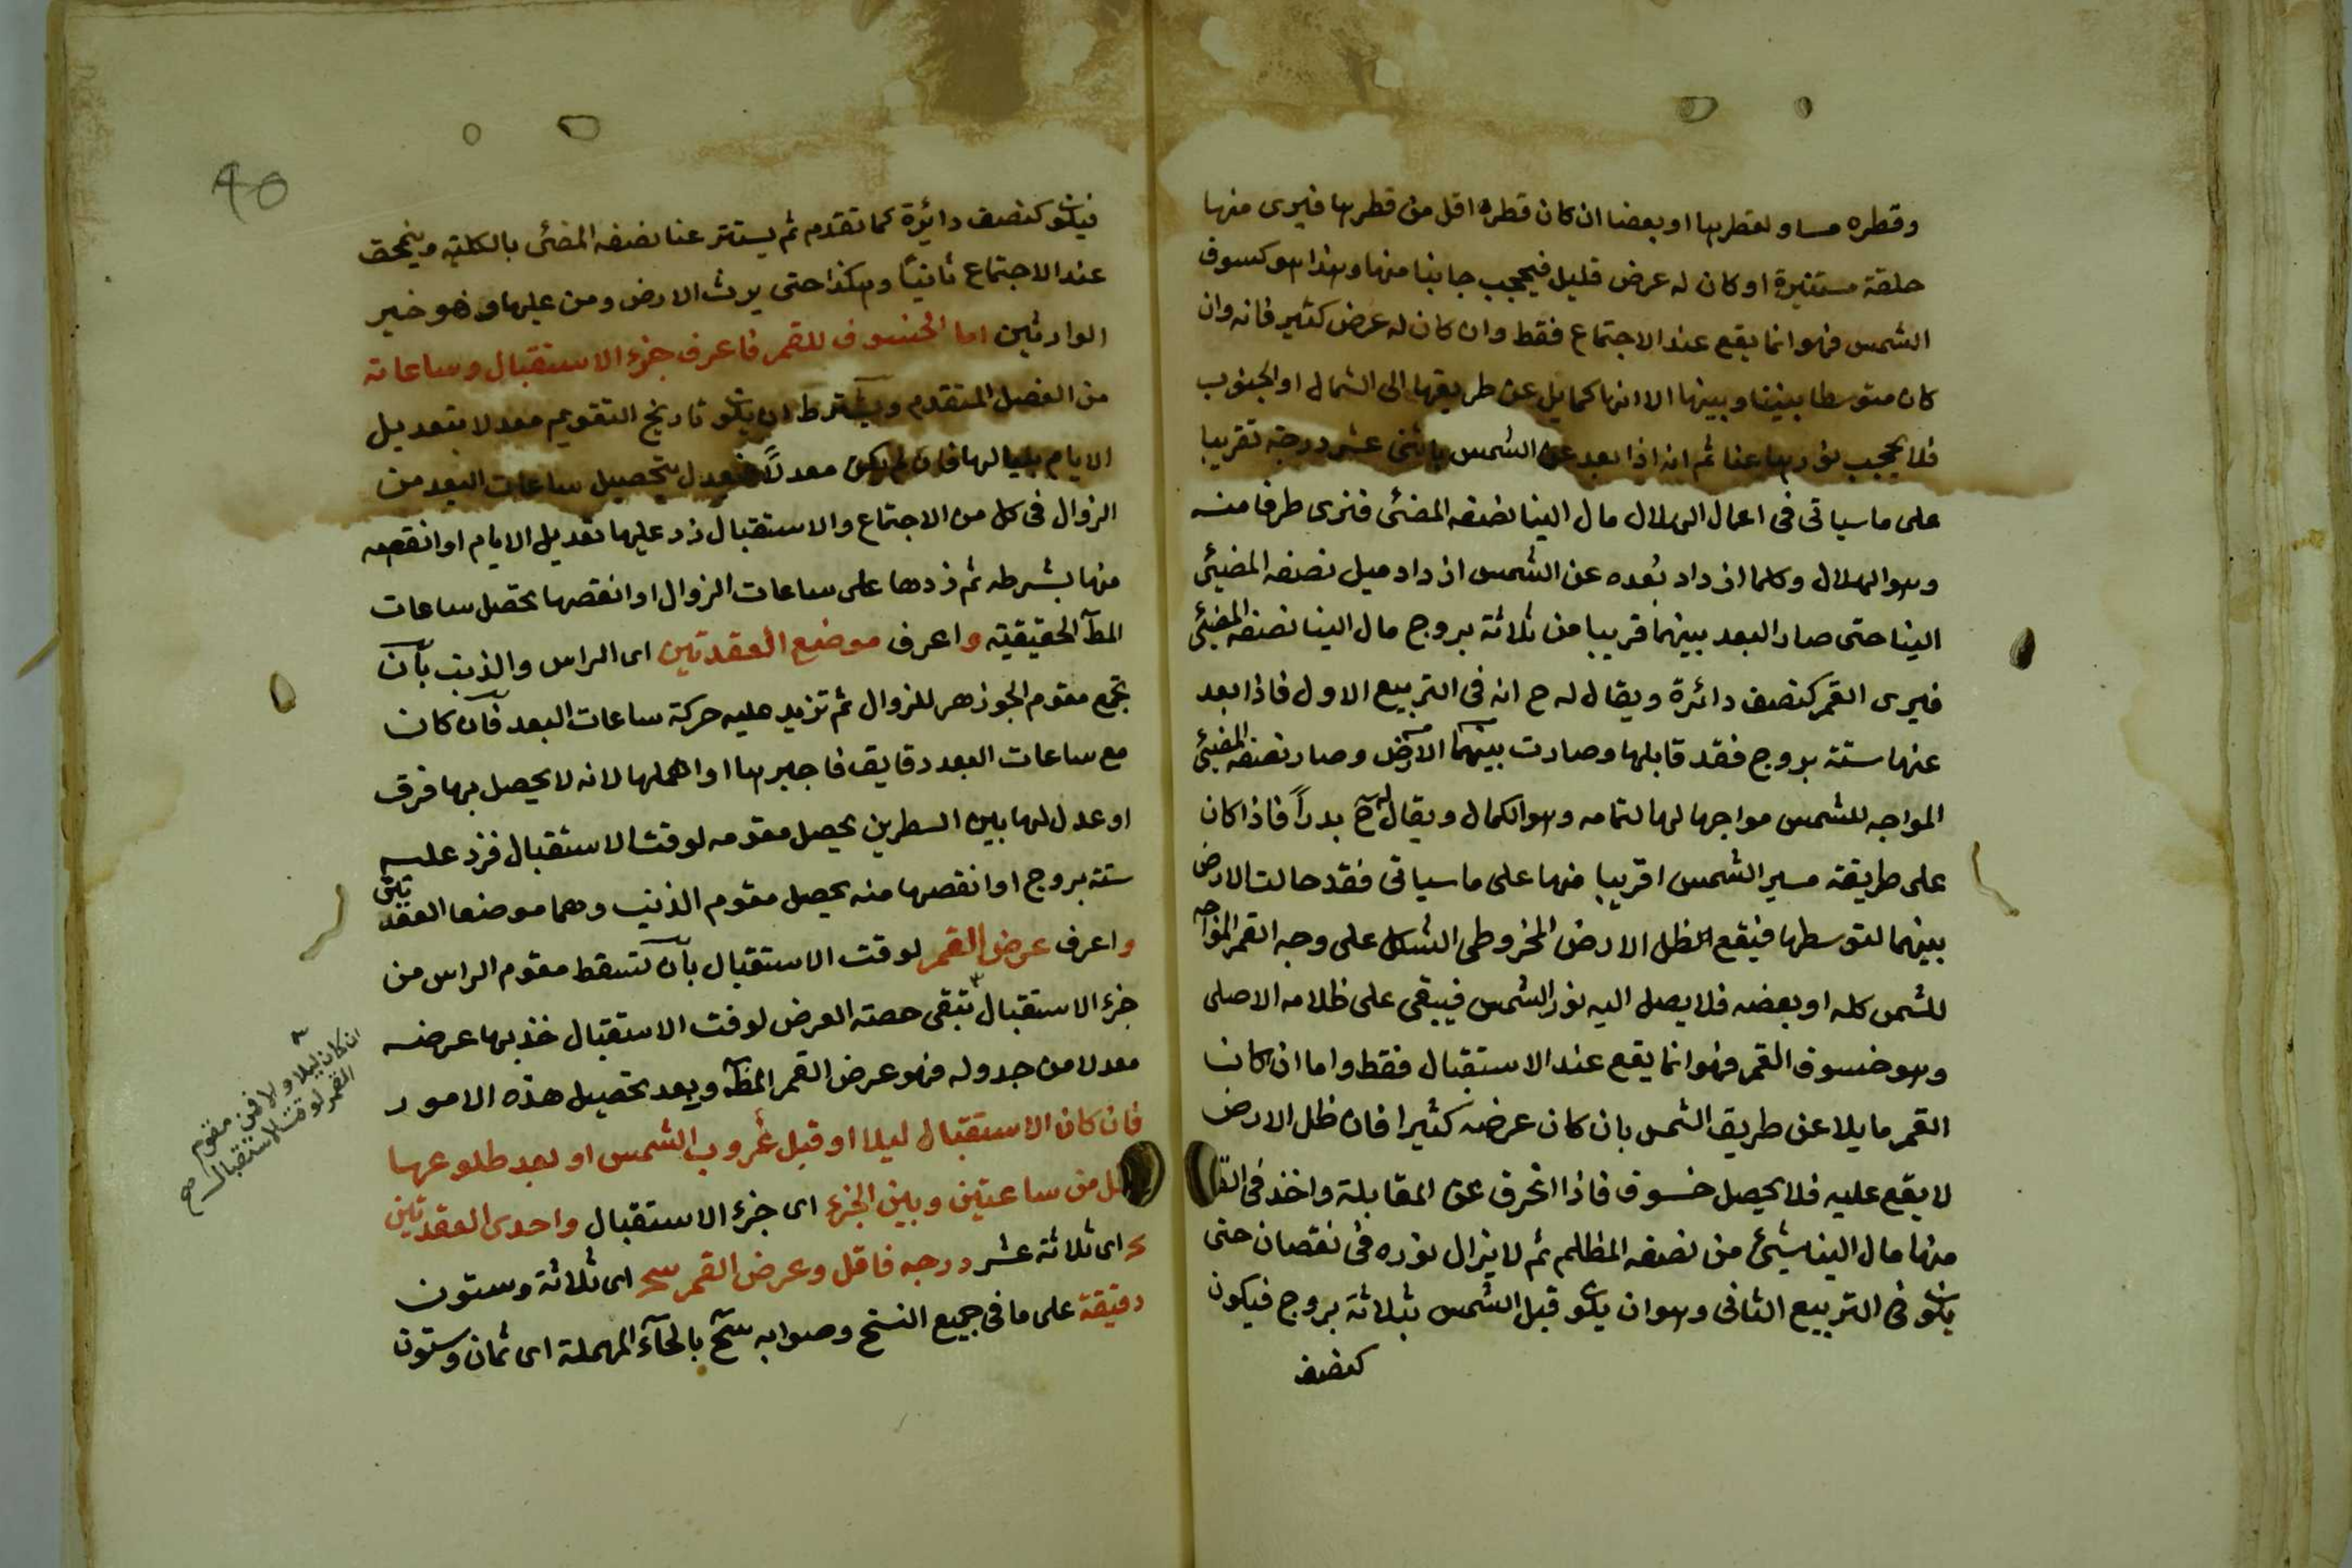 وقطره مساو لقطرها او بعضا ان كان قطره اقل من قطرها فيرى منها
حلقة مستنيرة او كان له عرض قليل فيحجب جانبا منها وهذا هو كسوف
الشمس فهو انما يقع عند الاجتماع فقط وان كان له عرض كثير فانه وان
كان متوسطا بيننا وبينها الا انها كمايل عن طريقها الى الشمال او الجنوب
فلا يحجب نورها عنا ثم انه اذا بعد عن الشمس باثنى عشر درجة تقريبا
على ما سياتى فى اعمال الهلال مال الينا نصفه المضئى فنرى طرفا منه
وهو الهلال وكلما ازداد بُعده عن الشمس ازداد ميل نصفه المضيئى
الينا حتى صار البعد بينهما قريبا من ثلاثة بروج مال الينا نصفه المضيئى
فيرى القمر كنصف دائرة ويقال له ح انه فى التربيع الاول فاذا بعد
عنها ستة بروج فقد قابلها وصارت بينهما الارض وصار نصفه المضيئى
المواجه للشمس مواجها لها لتمامه وهو الكمال ويقال له ح بدراً فاذا كان
على طريقة مسير الشمس او قريبا منها على ما سياتى فقد حالت الارض
بينهما لتوسطها فيقع ظل الارض المخروطى الشكل على وجه القمر المواجه
للشمس كله او بعضه فلا يصل اليه نور الشمس فيبقى على ظلامه الاصلى
وهو خسوف القمر فهو انما يقع عند الاستقبال فقط واما ان كان
القمر مايلا عن طريق الشمس بان كان عرضه كثيرا فان ظل الارض
لا يقع عليه فلا يحصل خسوف فاذا انحرف عن المقابلة واخذ فى
منها مال الينا شيئ من نصفه المظلم ثم لا يزال نوره فى نقصان حتى
يكون فى التربيع الثانى وهو ان يكون قبل الشمس بثلاثة بروج فيكون
كنصف
40
فيكون كنصف دائرة كما تقدم ثم يستتر عنا نصفه المضئى بالكلية وينمحق
عند الاجتماع ثانيًا وهكذا حتى يرث الارض ومن عليها وهو خير
الوارثين اما الخسوف للقمر فاعرف جزء الاستقبال وساعاته
من الفصل المتقدم ويشترط ان يكون تاريخ التقويم معدلا بتعديل
الايام بلياليها فان لم يكن معدلاً فبعد تحصيل ساعات البعد من
الزوال فى كل من الاجتماع والاستقبال زد عليها تعديل الايام او انقصه
منها بشرطه ثم زدها على ساعات الزوال او انقصها تحصل ساعات
المط الحقيقية واعرف موضع العقدتين اى الراس والذنب بان
تجمع مقوم الجوزهر للزوال ثم تزيد عليه حركة ساعات البعد فان كان
مع ساعات البعد دقايق فاجبرها او اهملها لانه لا يحصل بها فرق
او عدل لها بين السطرين يحصل مقومه لوقت الاستقبال فزد عليه
ستة بروج او انقصها منه يحصل مقوم الذنب وهما موضعا العقدتين
واعرف عرض القمر لوقت الاستقبال بان تسقط مقوم الراس من
جزء الاستقبال تبقى حصة العرض لوقت الاستقبال خذ بها عرضه
معدلا من جدوله فهو عرض القمر المط وبعد تحصيل هذه الامور
فان كان الاستقبال ليلا او قبل غروب الشمس او بعد طلوعها
باقل من ساعتين وبين الجزء اى جزء الاستقبال واحدى العقدتين
اى ثلاثة عشر درجه فاقل وعرض القمر سج اى ثلاثة وستون
دقيقة على ما فى جميع النسخ وصوابه سح بالحاء المهملة اى ثمان وستون
ان كان ليلا والا فمن مقوم
القمر لوقت الاستقبال صح